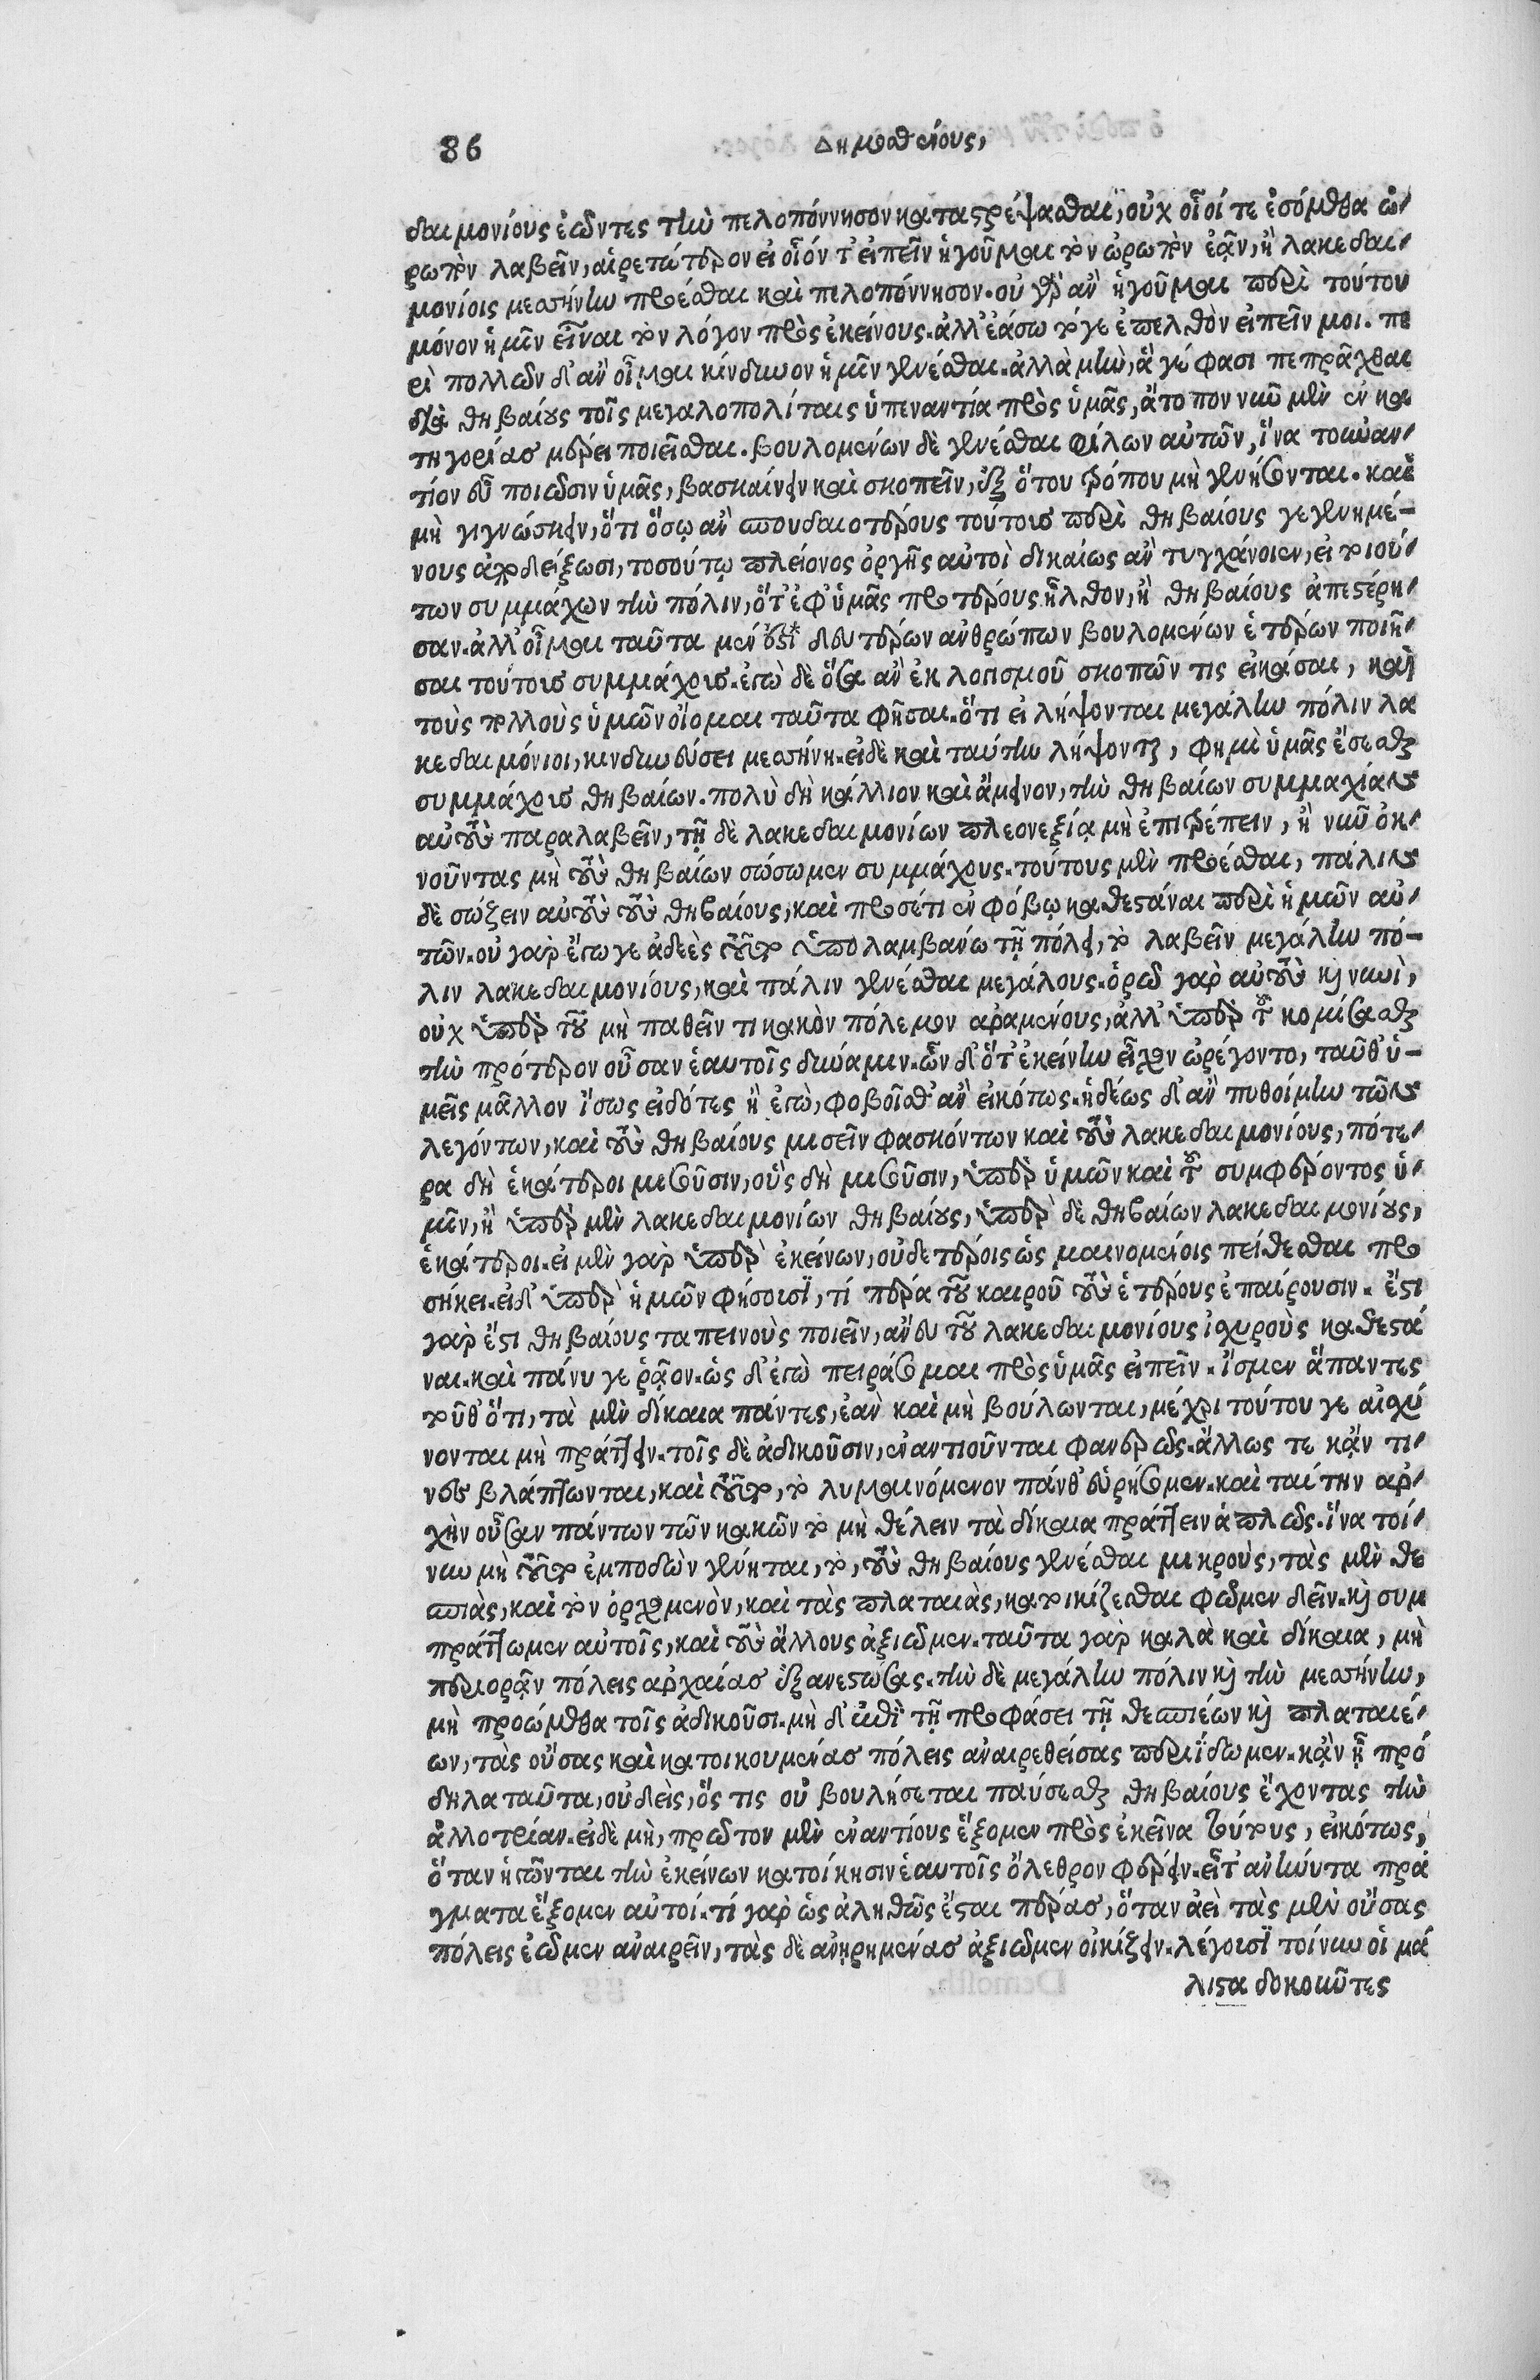 86
Δημοσθένους,
δαιμονίους ἐῶντες τὴν πελοπόννησον καταστρέψασθαι, οὐχ οἷοί τε ἐσόμεθα ὠ-
ρωπὸν λαβεῖν, αἱρετώτερον εἰ οἷόν τ' εἰπεῖν ἡγοῦμαι τὸν ὠρωπὸν ἐᾷν, ἢ λακεδαι-
μονίοις μεσήνην προέσθαι καὶ πελοπόννησον. οὐ γὰρ ἂν ἡγοῦμαι περὶ τούτου
μόνον ἡμῖν εἶναι τὸν λόγον πρὸς ἐκείνους. ἀλλ' ἐάσω τό γε ἐπελθὸν εἰπεῖν μοι. πε
ρὶ πολλῶν δ' ἂν οἶμαι κίνδυνον ἡμῖν γενέσθαι. ἀλλὰ μὴν, ἅ γέ φασι πεπρᾶχθαι
διὰ θηβαίους τοῖς μεγαλοπολίταις ὑπεναντία πρὸς ὑμᾶς, ἄτοπον νῦν μὲν ἐν κα
τηγορίας μέρει ποιεῖσθαι. βουλομένων δὲ γενέσθαι φίλων αὐτῶν, ἵνα τοὐναν-
τίον εὖ ποιῶσιν ὑμᾶς, βασκαίνειν καὶ σκοπεῖν, ἐξ ὅτου τρόπου μὴ γενήσονται. καὶ
μὴ γιγνώσκειν, ὅτι ὅσῳ ἂν σπουδαιοτέρους τούτους περὶ θηβαίους γεγενημέ-
νους ἀποδείξωσι, τοσούτῳ πλείονος ὀργῆς αὐτοὶ δικαίως ἂν τυγχάνοιεν, εἰ τοιού-
των συμμάχων τὴν πόλιν, ὅτ' ἐφ' ὑμᾶς προτέρους ἦλθον, ἢ θηβαίους ἀπεστέρη-
σαν. ἀλλ' οἶμαι ταῦτα μέν ἐστι* δευτέρων ἀνθρώπων βουλομένων ἑτέρων ποιῆ-
σαι τούτους συμμάχους. ἐγὼ δὲ ὅσα ἂν ἐκ λογισμοῦ σκοπῶν τις εἰκάσαι, καὶ
τοὺς πολλοὺς ὑμῶν οἴομαι ταῦτα φῆσαι. ὅτι εἰ λήψονται μεγάλην πόλιν λα
κεδαιμόνιοι, κινδυνεύσει μεσήνη. εἰ δὲ καὶ ταύτην λήψονται, φημὶ ὑμᾶς ἔσεσθαι
συμμάχους θηβαίων. πολὺ δὴ κάλλιον καὶ ἄμεινον, τὴν θηβαίων συμμαχίαν
αὐτοὺς παραλαβεῖν, τῇ δὲ λακεδαιμονίων πλεονεξίᾳ μὴ ἐπιτρέπειν, ἢ νῦν ὀκ-
νοῦντας μὴ τοὺς θηβαίων σώσωμεν συμμάχους. τούτους μὲν προέσθαι, πάλιν
δὲ σώζειν αὐτοὺς τοὺς θηβαίους, καὶ προσέτι ἐν φόβῳ καθεστάναι περὶ ἡμῶν αὐ-
τῶν. οὐ γὰρ ἔγωγε ἀδεὲς τοῦτο ὑπολαμβάνω τῇ πόλει, τὸ λαβεῖν μεγάλην πό-
λιν λακεδαιμονίους, καὶ πάλιν γενέσθαι μεγάλους. ὁρῶ γὰρ αὐτοὺς καὶ νυνὶ,
οὐχ ὑπὲρ τοῦ μὴ παθεῖν τι κακὸν πόλεμον ἀραμένους, ἀλλ' ὑπὲρ τοῦ κομίσασθαι
τὴν πρότερον οὖσαν ἑαυτοῖς δύναμιν. ὧν δ' ὅτ' ἐκείνην εἶχον ὠρέγοντο, ταῦθ' ὑ-
μεῖς μᾶλλον ἴσως εἰδότες ἢ ἐγὼ, φοβοῖσθ' ἂν εἰκότως. ἡδέως δ' ἂν πυθοίμην τῶν
λεγόντων, καὶ τοὺς θηβαίους μισεῖν φασκόντων καὶ τοὺς λακεδαιμονίους, πότε-
ρα δὴ ἑκάτεροι μισοῦσιν, οὓς δὴ μισοῦσιν, ὑπὲρ ὑμῶν καὶ τοῦ συμφέροντος ὑ-
μῖν, ἢ ὑπὲρ μὲν λακεδαιμονίων θηβαίους, ὑπὲρ δὲ θηβαίων λακεδαιμονίους,
ἑκάτεροι. εἰ μὲν γὰρ ὑπὲρ ἐκείνων, οὐδετέροις ὡς μαινομένοις πείθεσθαι προ
σήκει. εἰ δ' ὑπὲρ ἡμῶν φήσουσι, τί πέρα τοῦ καιροῦ τοὺς ἑτέρους ἐπαίρουσιν. ἔστι
γὰρ ἔστι θηβαίους ταπεινοὺς ποιεῖν, ἄνευ τοῦ λακεδαιμονίους ἰσχυροὺς καθεστά
ναι. καὶ πάνυ γε ῥᾷον. ὡς δ' ἐγὼ πειράσομαι πρὸς ὑμᾶς εἰπεῖν. ἴσμεν ἅπαντες
τοῦθ' ὅτι, τὰ μὲν δίκαια πάντες, ἐὰν καὶ μὴ βούλωνται, μέχρι τούτου γε αἰσχύ
νονται μὴ πράττειν. τοῖς δὲ ἀδικοῦσιν, ἐναντιοῦνται φανερῶς. ἄλλως τε κᾂν τι-
νες βλάπτωνται, καὶ τοῦτο, τὸ λυμαινόμενον πάνθ' εὑρήσομεν. καὶ ταύτην ἀρ-
χὴν οὖσαν πάντων τῶν κακῶν τὸ μὴ θέλειν τὰ δίκαια πράττειν ἁπλῶς. ἵνα τοί-
νυν μὴ τοῦτο ἐμποδὼν γένηται, τὸ, τοὺς θηβαίους γενέσθαι μικροὺς, τὰς μὲν θε
σπιὰς, καὶ τὸν ὀρχομενὸν, καὶ τὰς πλαταιὰς, κατοικίζεσθαι φῶμεν δεῖν. καὶ συμ
πράττωμεν αὐτοῖς, καὶ τοὺς ἄλλους ἀξιῶμεν. ταῦτα γὰρ καλὰ καὶ δίκαια, μὴ
περιορᾷν πόλεις ἀρχαίας ἐξανεστώσας. τὴν δὲ μεγάλην πόλιν καὶ τὴν μεσήνην,
μὴ προώμεθα τοῖς ἀδικοῦσι. μὴ δ' ἐπὶ τῇ προφάσει τῇ θεσπιέων καὶ πλαταιέ-
ων, τὰς οὔσας καὶ κατοικουμένας πόλεις ἀναιρεθείσας περιΐδωμεν. κᾂν ᾖ πρό
δηλα ταῦτα, οὐδεὶς, ὅς τις οὐ βουλήσεται παύσεσθαι θηβαίους ἔχοντας τὴν
ἀλλοτρίαν. εἰ δὲ μὴ, πρῶτον μὲν ἐναντίους ἕξομεν πρὸς ἐκεῖνα τούτους, εἰκότως,
ὅταν ἡγῶνται τὴν ἐκείνων κατοίκησιν ἑαυτοῖς ὄλεθρον φέρειν. εἶτ' ἀνήνυτα πρά
γματα ἕξομεν αὐτοί. τί γὰρ ὡς ἀληθῶς ἔσται πέρας, ὅταν ἀεὶ τὰς μὲν οὔσας
πόλεις ἐῶμεν ἀναιρεῖν, τὰς δὲ ἀνῃρημένας ἀξιῶμεν οἰκίζειν. λέγουσι τοίνυν οἱ μά
λιστα δοκοῦντες